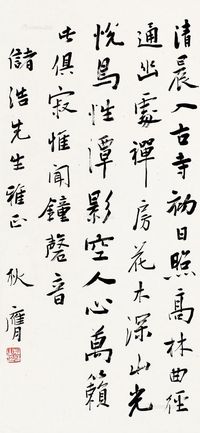 清晨入古寺初日照高林曲径
通幽處禪房花木深山光
悦鳥性潭影空人心萬籟
此俱寂惟聞鐘磬音
儲浩先生雅正 狄膺